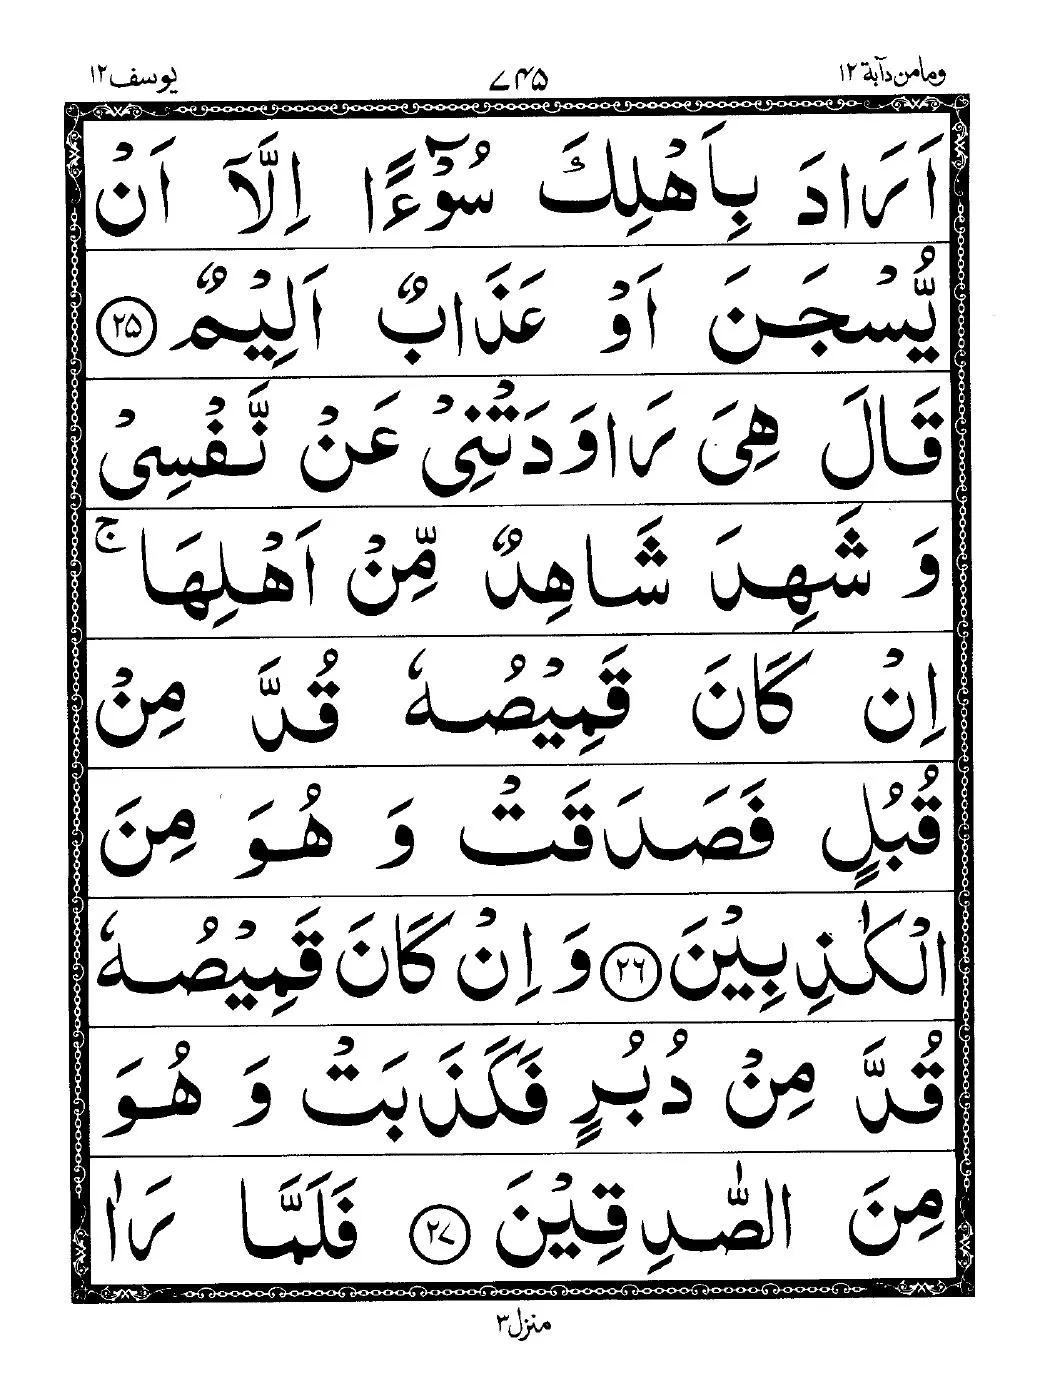 وما من دآبة ١٢ ٧٤٥ يوسف ١٢
اَرَادَ بِاَهْلِكَ سُوْٓءًا اِلَّاۤ اَنْ
يُّسْجَنَ اَوْ عَذَابٌ اَلِيْمٌ ٢٥
قَالَ هِىَ رَاوَدَتْنِىْ عَنْ نَّفْسِىْ
وَ شَهِدَ شَاهِدٌ مِّنْ اَهْلِهَا ۚ
اِنْ كَانَ قَمِيْصُهٗ قُدَّ مِنْ
قُبُلٍ فَصَدَقَتْ وَ هُوَ مِنَ
الْكٰذِبِيْنَ ٢٦ وَ اِنْ كَانَ قَمِيْصُهٗ
قُدَّ مِنْ دُبُرٍ فَكَذَبَتْ وَ هُوَ
مِنَ الصّٰدِقِيْنَ ٢٧ فَلَمَّا رَاٰ
منزل ٣